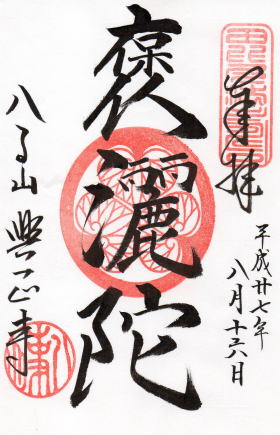 奉拝
平成廿七年
八月十六日
褒灑陀
八事山
興正寺